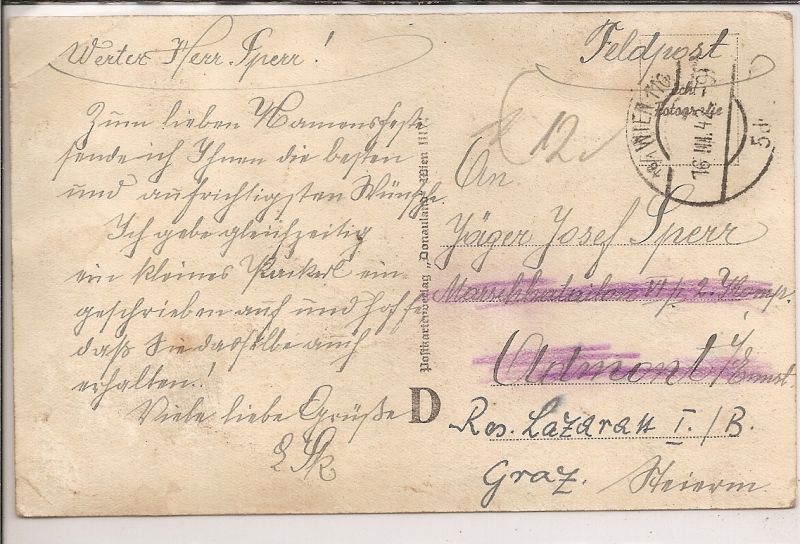 Werter Herr Sperr!
Zum lieben Namensfeste
sende ich Ihnen die besten
und aufrichtigsten Wünsche.
Ich gebe gleichzeitig
ein kleines Packerl ein-
geschrieben auf und hoffe
daß Sie dasselbe auch
erhalten!
Viele liebe Grüße
Feldpost
Echt
Fotografie
WIEN 110
16 III.44
12
An
Jäger Josef Sperr
Marschbataillon VI/1, 2. Komp.
Admont /
Ennst.
Res. Lazarett I./B.
Graz. Steierm.
Postkartenverlag „Donauland" Wien III/
D